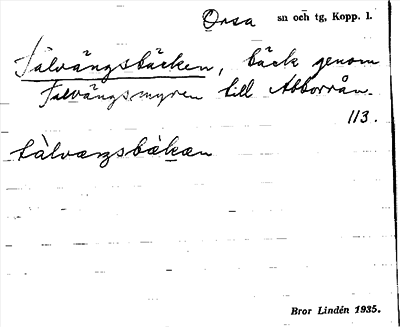 Orsa sn och tg, Kopp. l.
Tälvängsbäcken, bäck genom
Tälvängsmyren till Abborrån.
113.
tàlvæŋsbäkæn
Bror Lindén 1935.